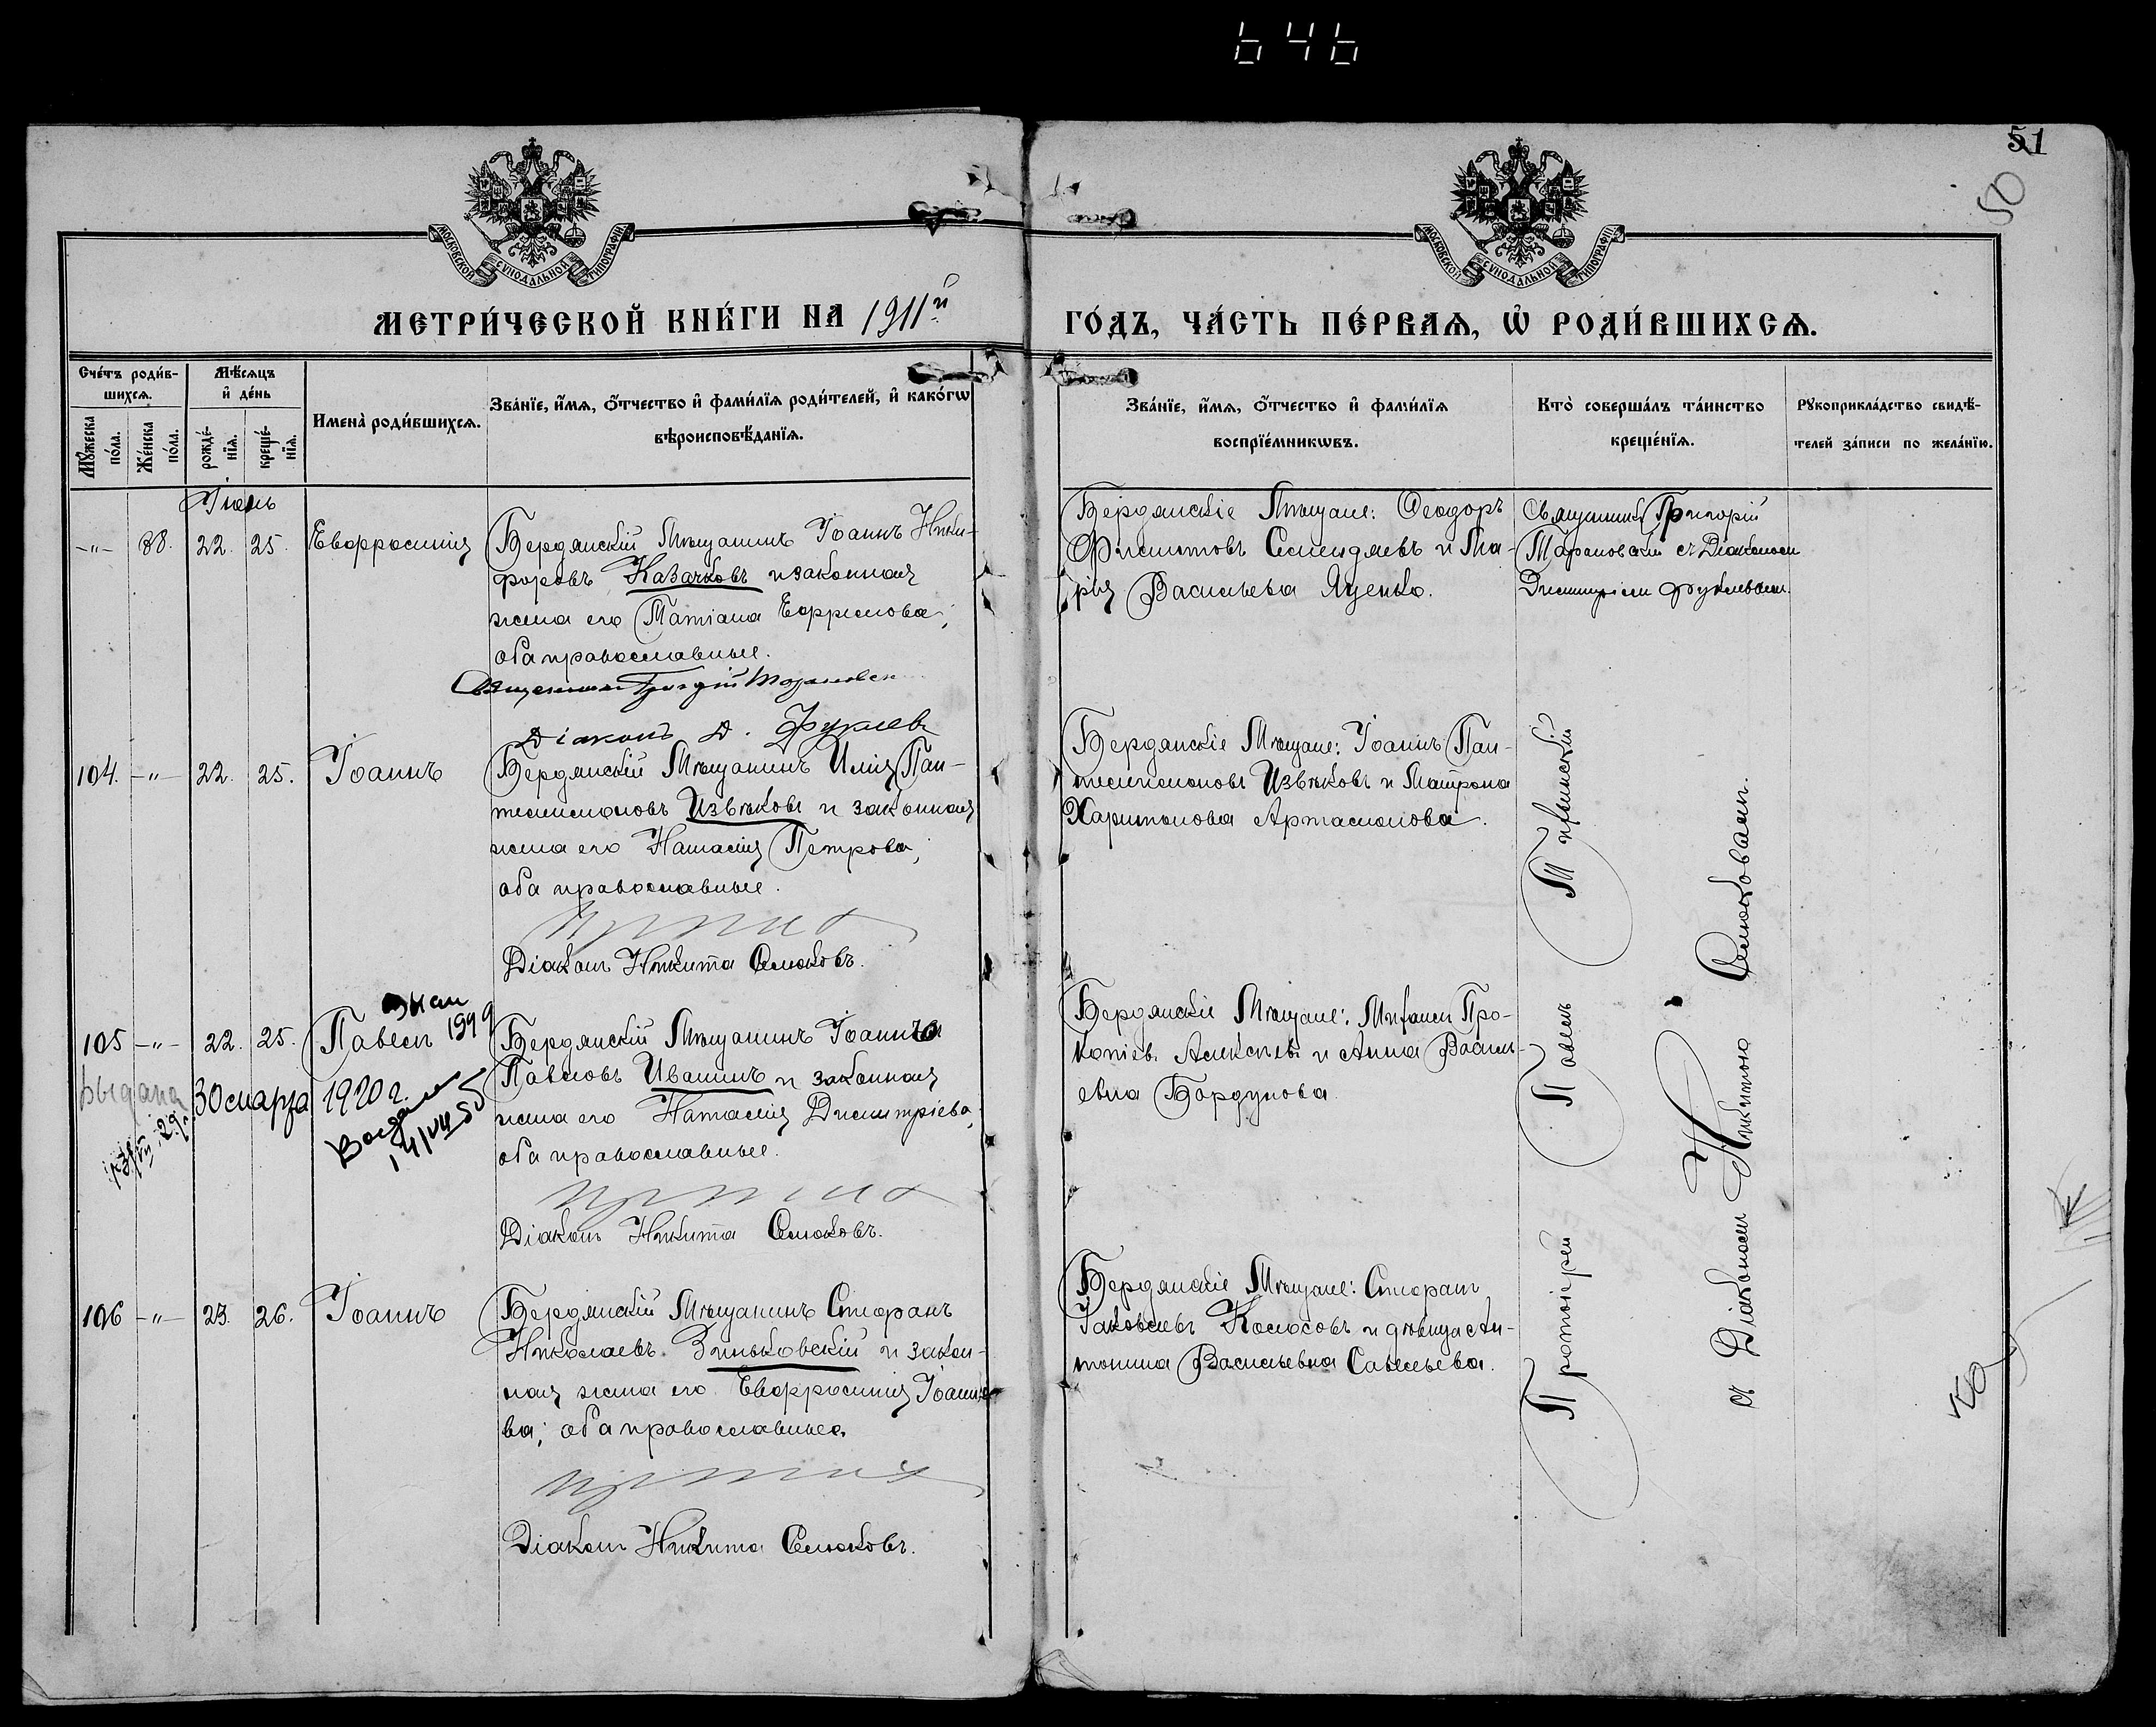 646
51
50
МОСКОВСКОЙ СѴНОДАЛЬНОЙ ТИПОГРАФІИ
МОСКОВСКОЙ СѴНОДАЛЬНОЙ ТИПОГРАФІИ
МЕТРИ́ЧЕСКОЙ КНИ́ГИ НА 1911й
ГО́ДЪ, ЧА́СТЬ ПЕ́РВАѦ, Ѡ҆ РОДИ́ВШИХСѦ.
Сче́тъ роди́в-
шихсѧ.
Мꙋ́жеска по́ла.
Же́нска по́ла.
Мѣ́сѧцъ
и҆ де́нь
рожде́-
нїѧ.
креще́-
нїѧ.
Имена̀ роди́вшихсѧ.
Зва́нїе, и҆́мѧ, ѻ҆́тчество и҆ фами́лїѧ роди́телей, и҆ како́гѡ
вѣроисповѣ́данїѧ.
Зва́нїе, и҆́мѧ, ѻ҆́тчество и҆ фами́лїѧ
воспрїе́мникѡвъ.
Кто̀ соверша́лъ та́инство
креще́нїѧ.
Рꙋкоприкла́дство свидѣ́-
телей за́писи по жела́нїю.
Іюль
-"- 88. 22. 25. Евфросинія
Бердянскій Мѣщанинъ Іоаннъ Ники-
форовъ Казачковъ и законная
жена его Татіана Ефримова;
оба православные.
Священникъ Григорій
Діаконъ Д. Фуклев
Бердянскіе Мѣщане: Ѳеодоръ
Филиптовъ Селендяевъ и Ма-
рія Васильева Яценко.
Священникъ Григорій
Тарановскій съ Діакономъ
Димитріем Фуклевым.
104. -"- 22. 25. Іоаннъ
Бердянскій Мѣщанинъ Илія Пан-
телеимоновъ Извѣковъ и законная
жена его Наталія Петрова,
оба православные.
Діаконъ Никита Селюковъ.
Бердянскіе Мѣщане: Іоаннъ Пан-
телеимоновъ Извѣковъ и Матрона
Харитонова Артамонова.
105 -"- 22. 25. Павелъ
1999
Выдана 30 марта 1920 г.
Бердянскій Мѣщанинъ Іоаннъ
Павловъ Ивашинъ и законная
жена его Наталія Димитріева,
оба православные.
Діаконъ Никита Селюковъ.
Бердянскіе Мѣщане: Михаил Про-
копіевъ Алексѣевъ и Анна Василь-
евна Бордунова.
106 -"- 23. 26. Іоаннъ
Бердянскій Мѣщанинъ Стефанъ
Николаевъ Зиньковскій и закон-
ная жена его Евфросинія Іоанно-
ва; оба православные.
Діаконъ Никита Селюковъ.
Бердянскіе Мѣщане: Стефанъ
Іаковлевъ Колосовъ и дѣвица Ан-
тонина Васильевна Савельева.
Протоіерей Павелъ
съ Діакономъ Никитою Селюковымъ.